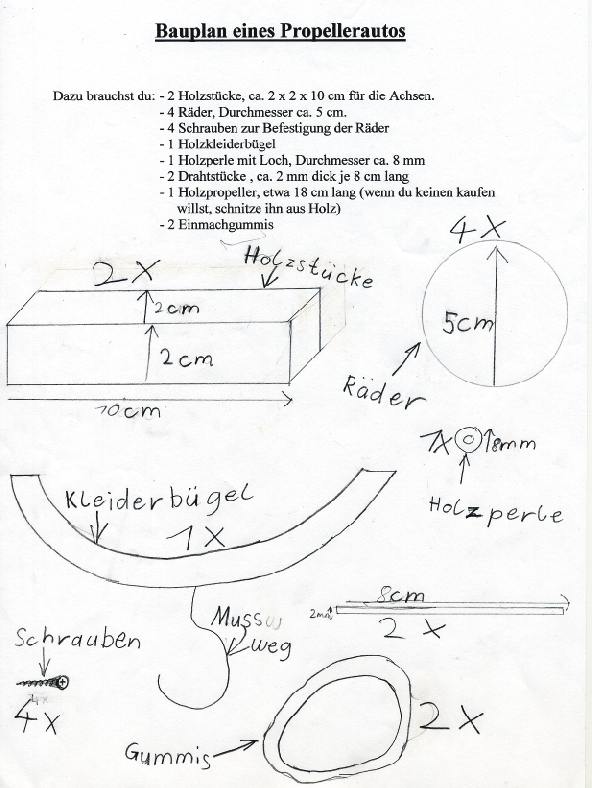 Bauplan eines Propellerautos
Dazu brauchst du: - 2 Holzstücke, ca. 2 x 2 x 10 cm für die Achsen.
- 4 Räder, Durchmesser ca. 5 cm.
- 4 Schrauben zur Befestigung der Räder
- 1 Holzkleiderbügel
- 1 Holzperle mit Loch, Durchmesser ca. 8 mm
- 2 Drahtstücke , ca. 2 mm dick je 8 cm lang
- 1 Holzpropeller, etwa 18 cm lang (wenn du keinen kaufen
willst, schnitze ihn aus Holz)
- 2 Einmachgummis
2 X
Holzstücke
2cm
2cm
10cm
4 X
5cm
Räder
1X
8mm
Holzperle
Kleiderbügel
1 X
Muss
weg
8cm
2mm
2 X
Schrauben
4 X
Gummis
2 X